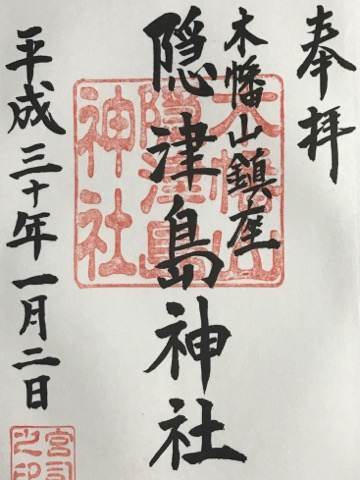 奉拝
木幡山鎮座
隠津島神社
平成三十年一月二日
木幡山
隠津島
神社
宮司
之印